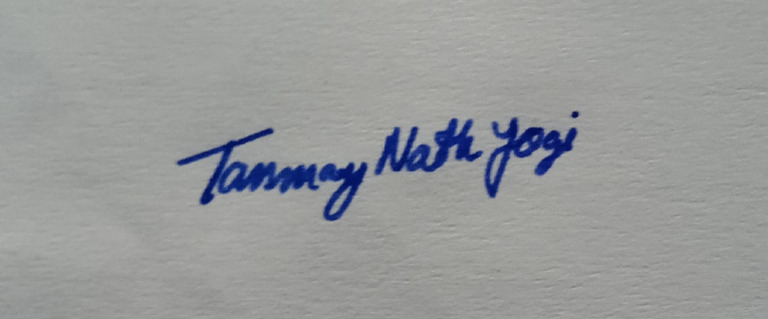 Tanmay Nath Yogi